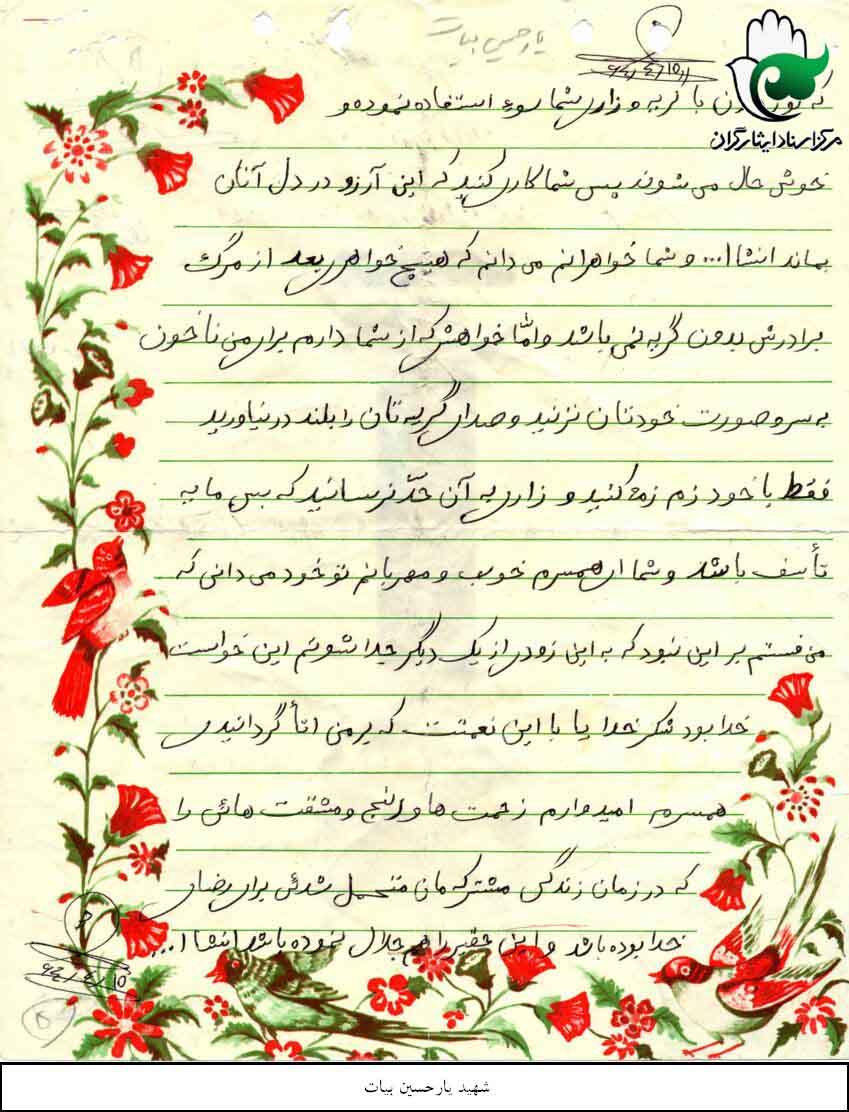 یارحسین بیات
مرکز اسناد ایثارگران
که با گریه و زاری شما سوء استفاده نموده و
خوش حال می شوند پس شما کاری کنید که این آرزو در دل آنان
بماند انشاا... و شما خواهرانم می دانم که هیچ خواهری بعد از مرگ
برادرش بدون گریه نمی باشد و اما خواهشی که از شما دارم برای من ناخون
به سر و صورت خودتان نزنید و صدای گریه تان را بلند در نیاورید
فقط با خود زمزمه کنید و زاری به آن حدّ نرسانید که بس مایه
تأسف باشد و شما ای همسرم خوب و مهربانم تو خود می دانی که
من بر این نبود که به این زودی از یک دیگر جدا شویم این خواست
خدا بود شکر خدایا با این نعمتت که بر من اتأ گردانیدی
همسرم امیدوارم زحمت ها و رنج و مشقت هائی را
که در زمان زندگی مشترکه مان متحمل شدئی برای رضای
خدا بوده باشد و این حقیر را هم حلال نموده باشد انشاا...
شهید یارحسین بیات